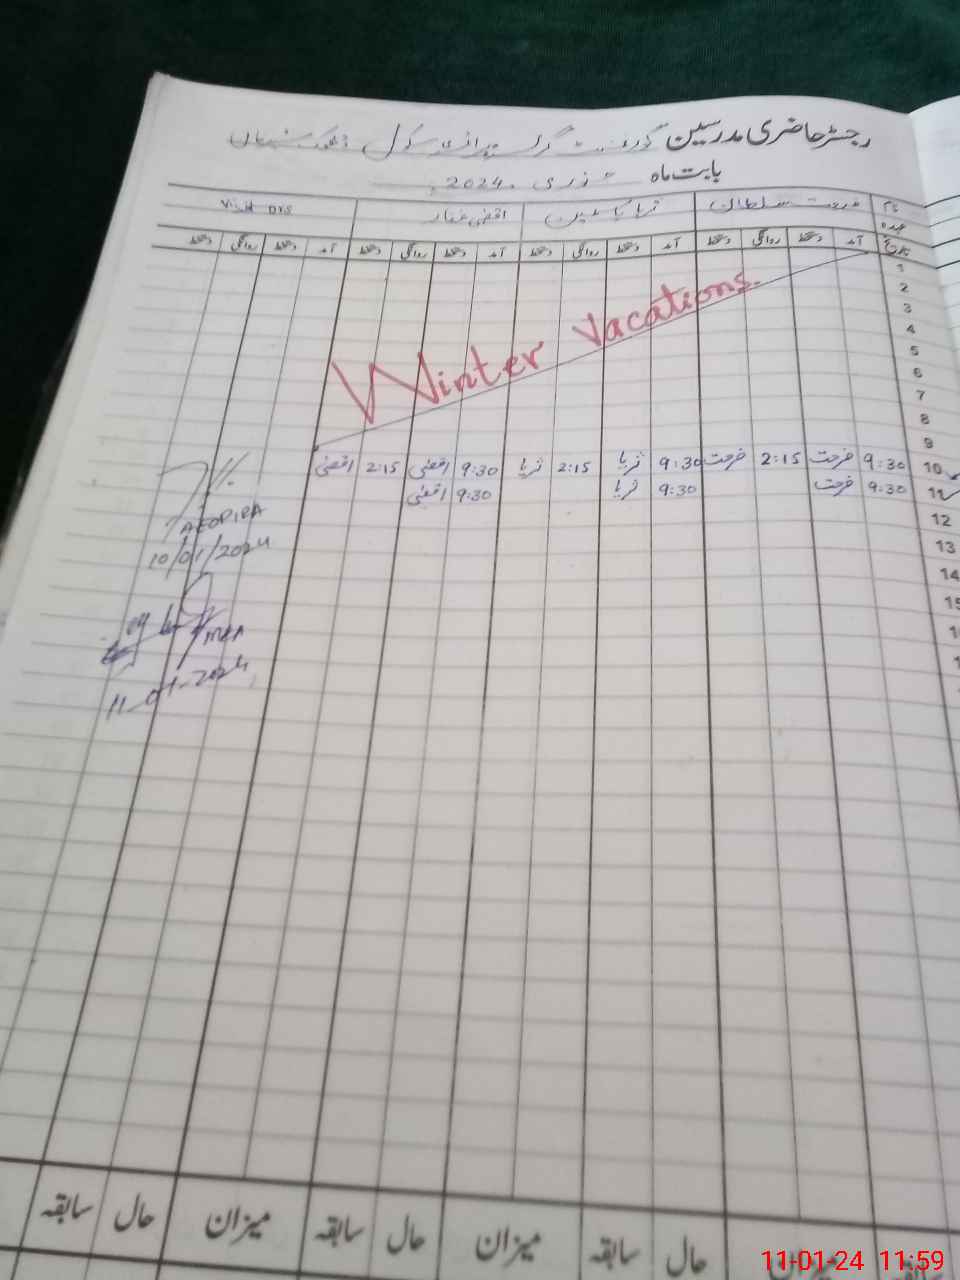 رجسٹر حاضری مدرسین گورنمنٹ گرلز پرائمری سکول ڈھوک
بابت ماہ جنوری 2024ء
نام فرحت سلطان ثریا یاسمین اقصٰی غفار Visit
عہدہ
تاریخ آمد دستخط روانگی دستخط آمد دستخط روانگی دستخط آمد دستخط روانگی دستخط آمد دستخط روانگی دستخط
1
2
3
4
5
6
7
8
9
Winter Vacations.
10 9:30 فرحت 2:15 فرحت 9:30 ثریا 2:15 ثریا 9:30 اقصٰی 2:15 اقصٰی
11 9:30 فرحت 9:30 ثریا 9:30 اقصٰی
12
13
14
15
10/01/2024
MEA
11-01-2024
حال سابقہ میزان حال سابقہ میزان حال سابقہ
11-01-24 11:59